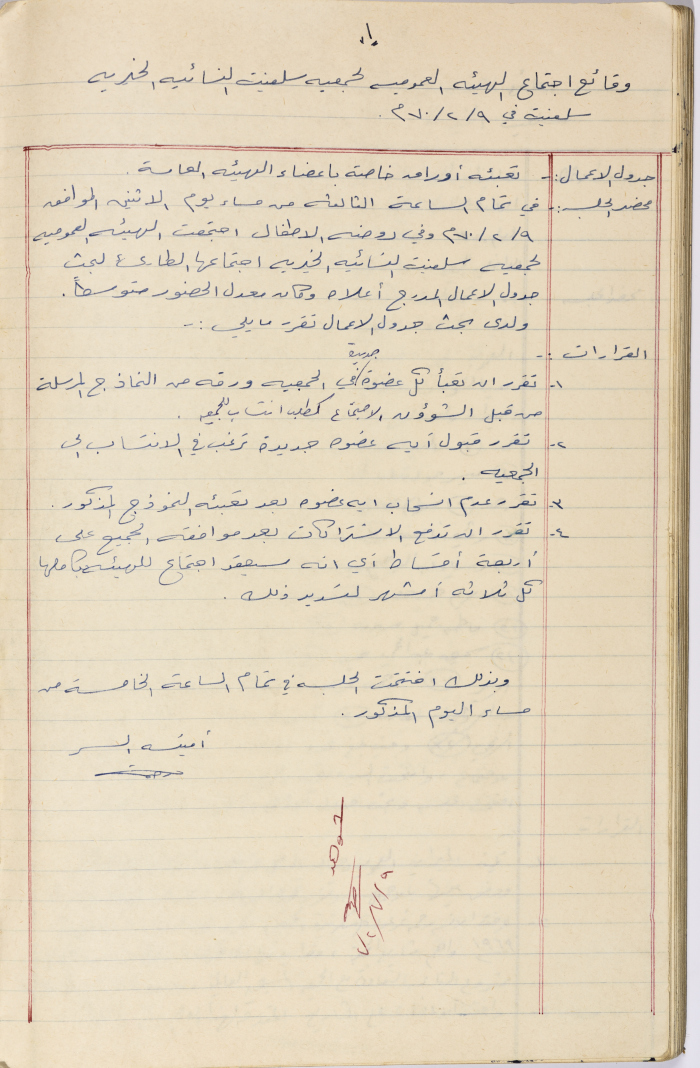 ١
وقائع اجتماع الهيئه العموميه لجمعيه سلفيت النسائيه الخيريه
سلفيت في ٧٠/٢/٩م.
جدول الاعمال :- تعبئه أوراق خاصة باعضاء الهيئه العامة .
محضر الجلسه :- في تمام الساعة الثالثه من مساء يوم الاثنين الموافق
٧٠/٢/٩م وفي روضه الاطفال اجتمعت الهيئه العموميه
لجمعيه سلفيت النسائيه الخيريه اجتماعها الطارئ لبحث
جدول الاعمال المدرج أعلاه وكان معدل الحضور متوسطاً .
ولدى بحث جدول الاعمال تقرر مايلي :-
القرارات :-
١- تقرر ان تعبأ كل عضوة جديدة في الجمعيه ورقه من النماذج المرسلة
من قبل الشؤون الاجتماعيه كطلب انتساب للجمعيه .
٢- تقرر قبول أيه عضوه جديدة ترغب في الانتساب الى
الجمعيه .
٣- تقرر عدم انسحاب ايه عضوه بعد تعبئه النموذج المذكور .
٤- تقرر ان تدفع الاشتراكات بعد موافقه الجميع على
أربعة أقساط أي انه سيعقد اجتماع للهيئه بكاملها
كل ثلاثه أشهر لتسديد ذلك .
وبذلك اختتمت الجلسه في تمام الساعة الخامسة من
مساء اليوم المذكور .
أمينه السر
٧٠/٢/٩